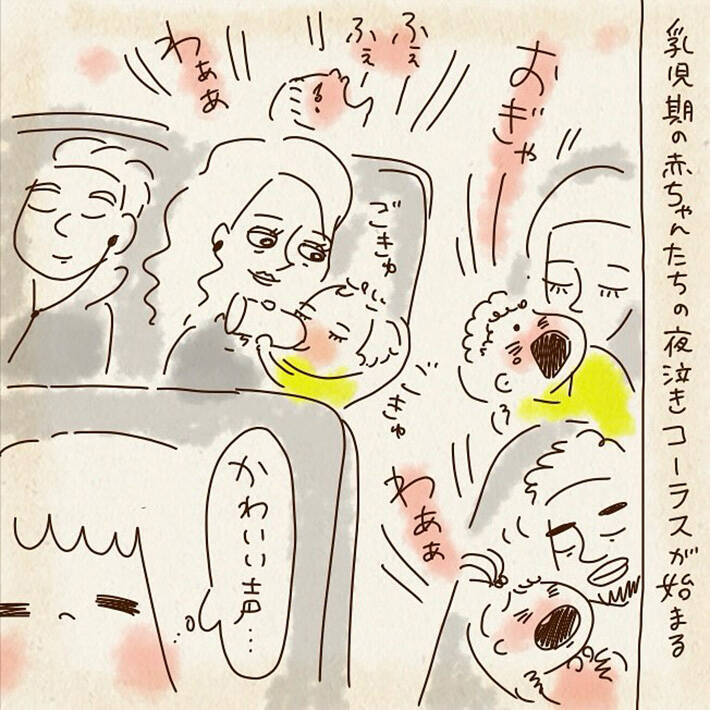 乳児期の赤ちゃんたちの夜泣きコーラスが始まる
おぎゃ
ふぇ
ふぇ
わぁぁ
ごきゅ
ごきゅ
わぁぁ
かわいい声…